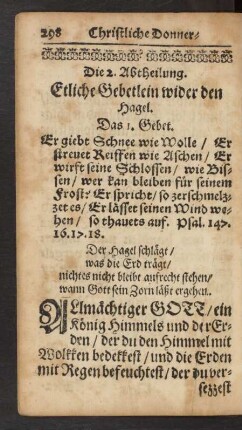 298 Christliche Donner-
Die 2. Abtheilung.
Etliche Gebetlein wider den
Hagel.
Das 1. Gebet.
Er giebt Schnee wie Wolle / Er
streuet Reiffen wie Aschen / Er
wirft seine Schlossen / wie Bis-
sen / wer kan bleiben für seinem
Frost? Er spricht / so zerschmelz-
zet es / Er lässet seinen Wind we-
hen / so thauets auf. Psal. 147.
16. 17. 18.
Der Hagel schlägt /
was die Erd trägt /
nichtes nicht bleibt aufrecht stehen /
wann Gott sein Zorn läst ergehen.
ALlmächtiger GOTT / ein
König Himmels und der Er-
den / der du den Himmel mit
Wolkken bedekkest / und die Erden
mit Regen befeuchtest / der du ver-
sezzest